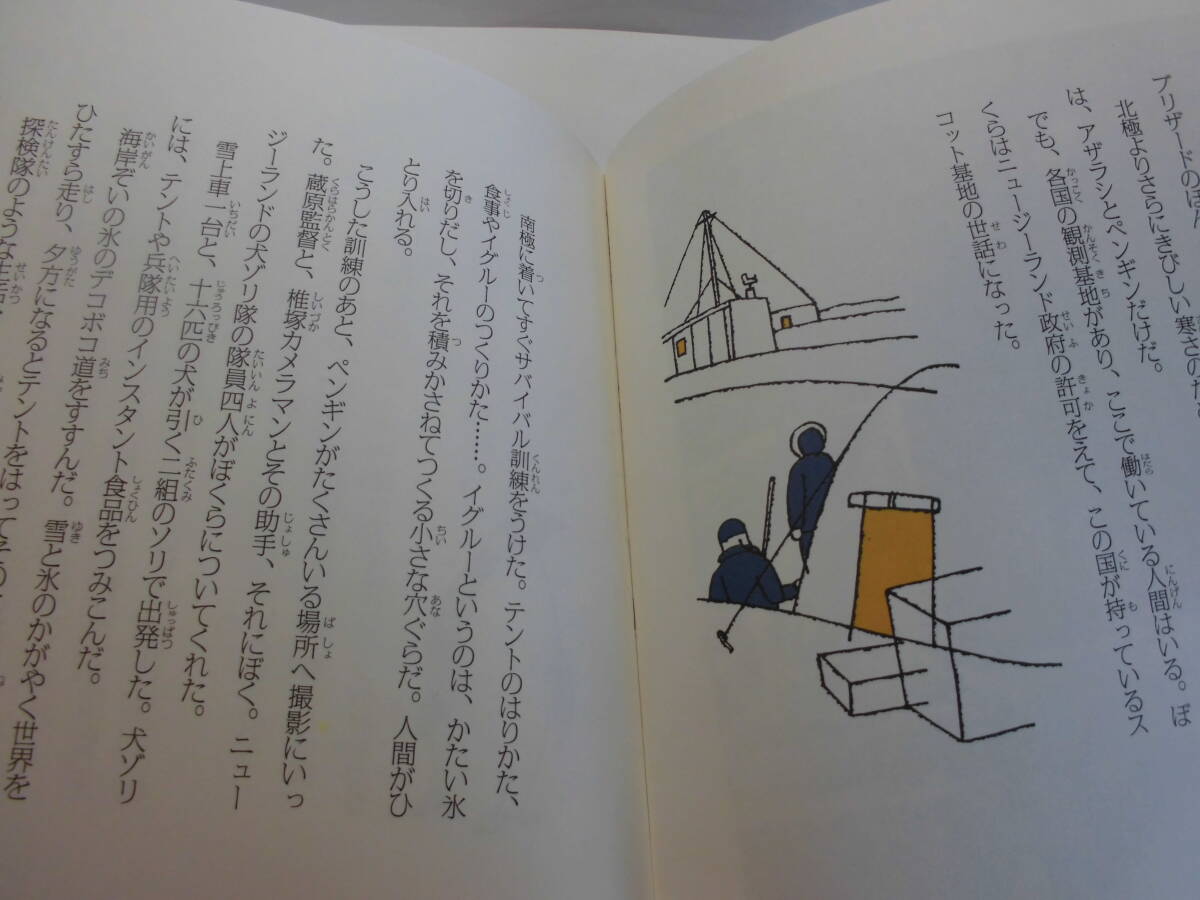 ブリザードの
北極よりさらにきびしい寒さの
は、アザラシとペンギンだけだ。
でも、各国の観測基地があり、ここで働いている人間はいる。ぼ
くらはニュージーランド政府の許可をえて、この国が持っているス
コット基地の世話になった。
南極に着いてすぐサバイバル訓練をうけた。テントのはりかた、
食事やイグルーのつくりかた……。イグルーというのは、かたい氷
を切りだし、それを積みかさねてつくる小さな穴ぐらだ。人間がひ
とり入れる。
こうした訓練のあと、ペンギンがたくさんいる場所へ撮影にいっ
た。蔵原監督と、椎塚カメラマンとその助手、それにぼく。ニュー
ジーランドの犬ゾリ隊の隊員四人がぼくらについてくれた。
雪上車一台と、十六匹の犬が引く二組のソリで出発した。犬ゾリ
には、テントや兵隊用のインスタント食品をつみこんだ。
海岸ぞいの氷のデコボコ道をすすんだ。雪と氷のかがやく世界を
ひたすら走り、夕方になるとテントをはって
探検隊のような生活